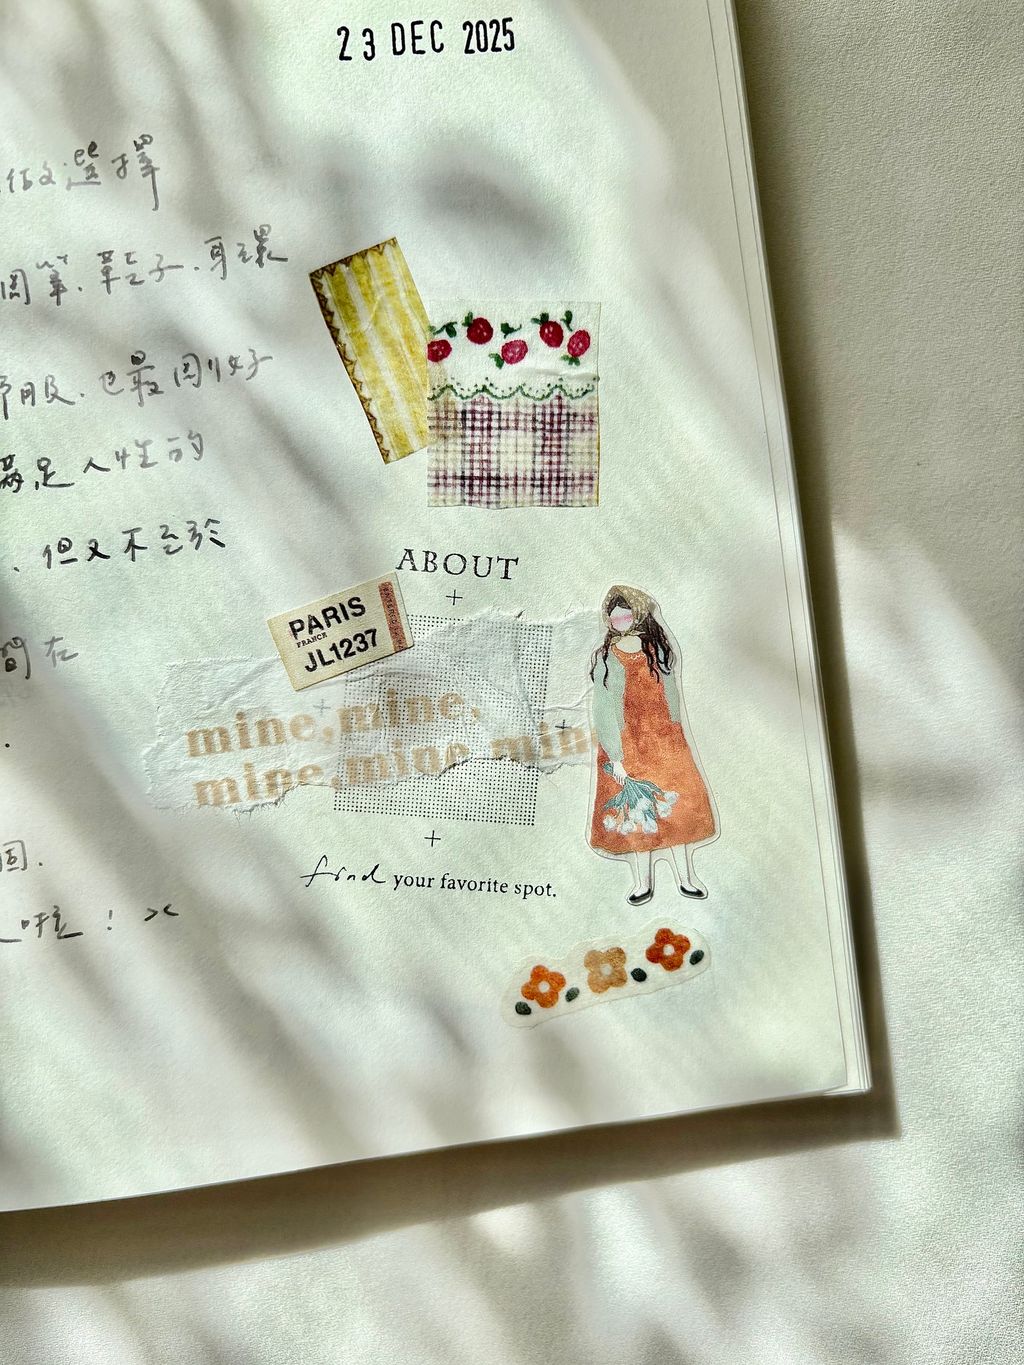 23 DEC 2025
做選擇
筆、鞋子、耳環
服、也最剛好
滿足人性的
，但又不至於
間在
固.
啦！><
ABOUT
+
PARIS
FRANCE
JL1237
mine,mine,
mine,mine mine
+
find your favorite spot.